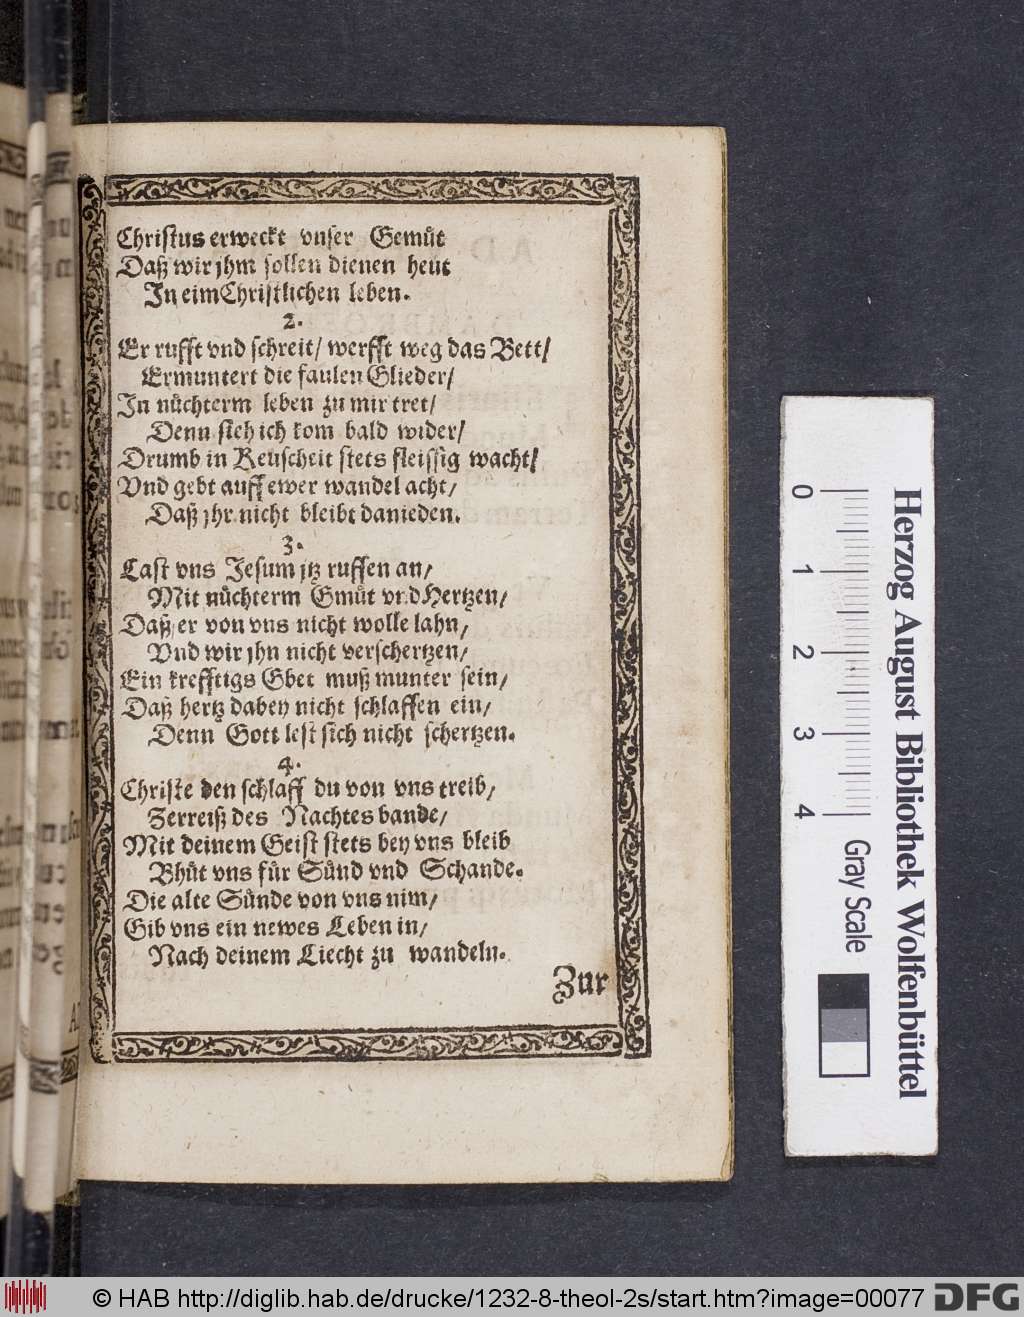 Christus erweckt vnser Gemuͤt
Daß wir jhm sollen dienen heut
In eim Christlichen leben.
2.
Er rufft vnd schreit/ werfft weg das Bett/
Ermuntert die faulen Glieder/
In nuͤchterm leben zu mir tret/
Denn sieh ich kom bald wider/
Drumb in Keuscheit stets fleissig wacht/
Vnd gebt auff ewer wandel acht/
Daß jhr nicht bleibt danieden.
3.
Last vns Jesum jtz ruffen an/
Mit nuͤchterm Gmuͤt vnd Hertzen/
Daß er von vns nicht wolle lahn/
Vnd wir jhn nicht verschertzen/
Ein krefftigs Gbet muß munter sein/
Daß hertz dabey nicht schlaffen ein/
Denn Gott lest sich nicht schertzen.
4.
Christe den schlaff du von vns treib/
Zerreiß des Nachtes bande/
Mit deinem Geist stets bey vns bleib
Bhuͤt vns fuͤr Suͤnd vnd Schande.
Die alte Suͤnde von vns nim/
Gib vns ein newes Leben in/
Nach deinem Liecht zu wandeln.
Zur
0 1 2 3 4
Gray Scale
Herzog August Bibliothek Wolfenbüttel
© HAB http://diglib.hab.de/drucke/1232-8-theol-2s/start.htm?image=00077
DFG